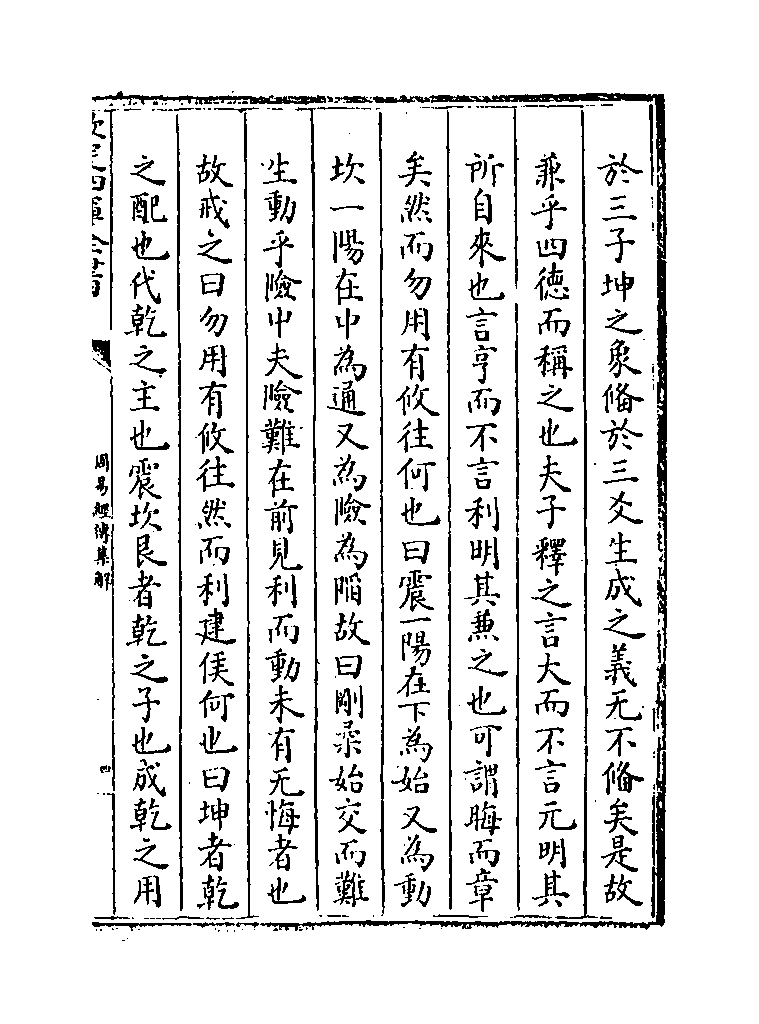 於三子坤之象備於三爻生成之義无不備矣是故
兼乎四德而稱之也夫子釋之言大而不言元明其
所自來也言亨而不言利明其兼之也可謂晦而章
矣然而勿用有攸往何也曰震一陽在下為始又為動
坎一陽在中為通又為險為陷故曰剛柔始交而難
生動乎險中夫險難在前見利而動未有无悔者也
故戒之曰勿用有攸往然而利建侯何也曰坤者乾
之配也代乾之主也震坎艮者乾之子也成乾之用
欽定四庫全書
周易經傳集解
四